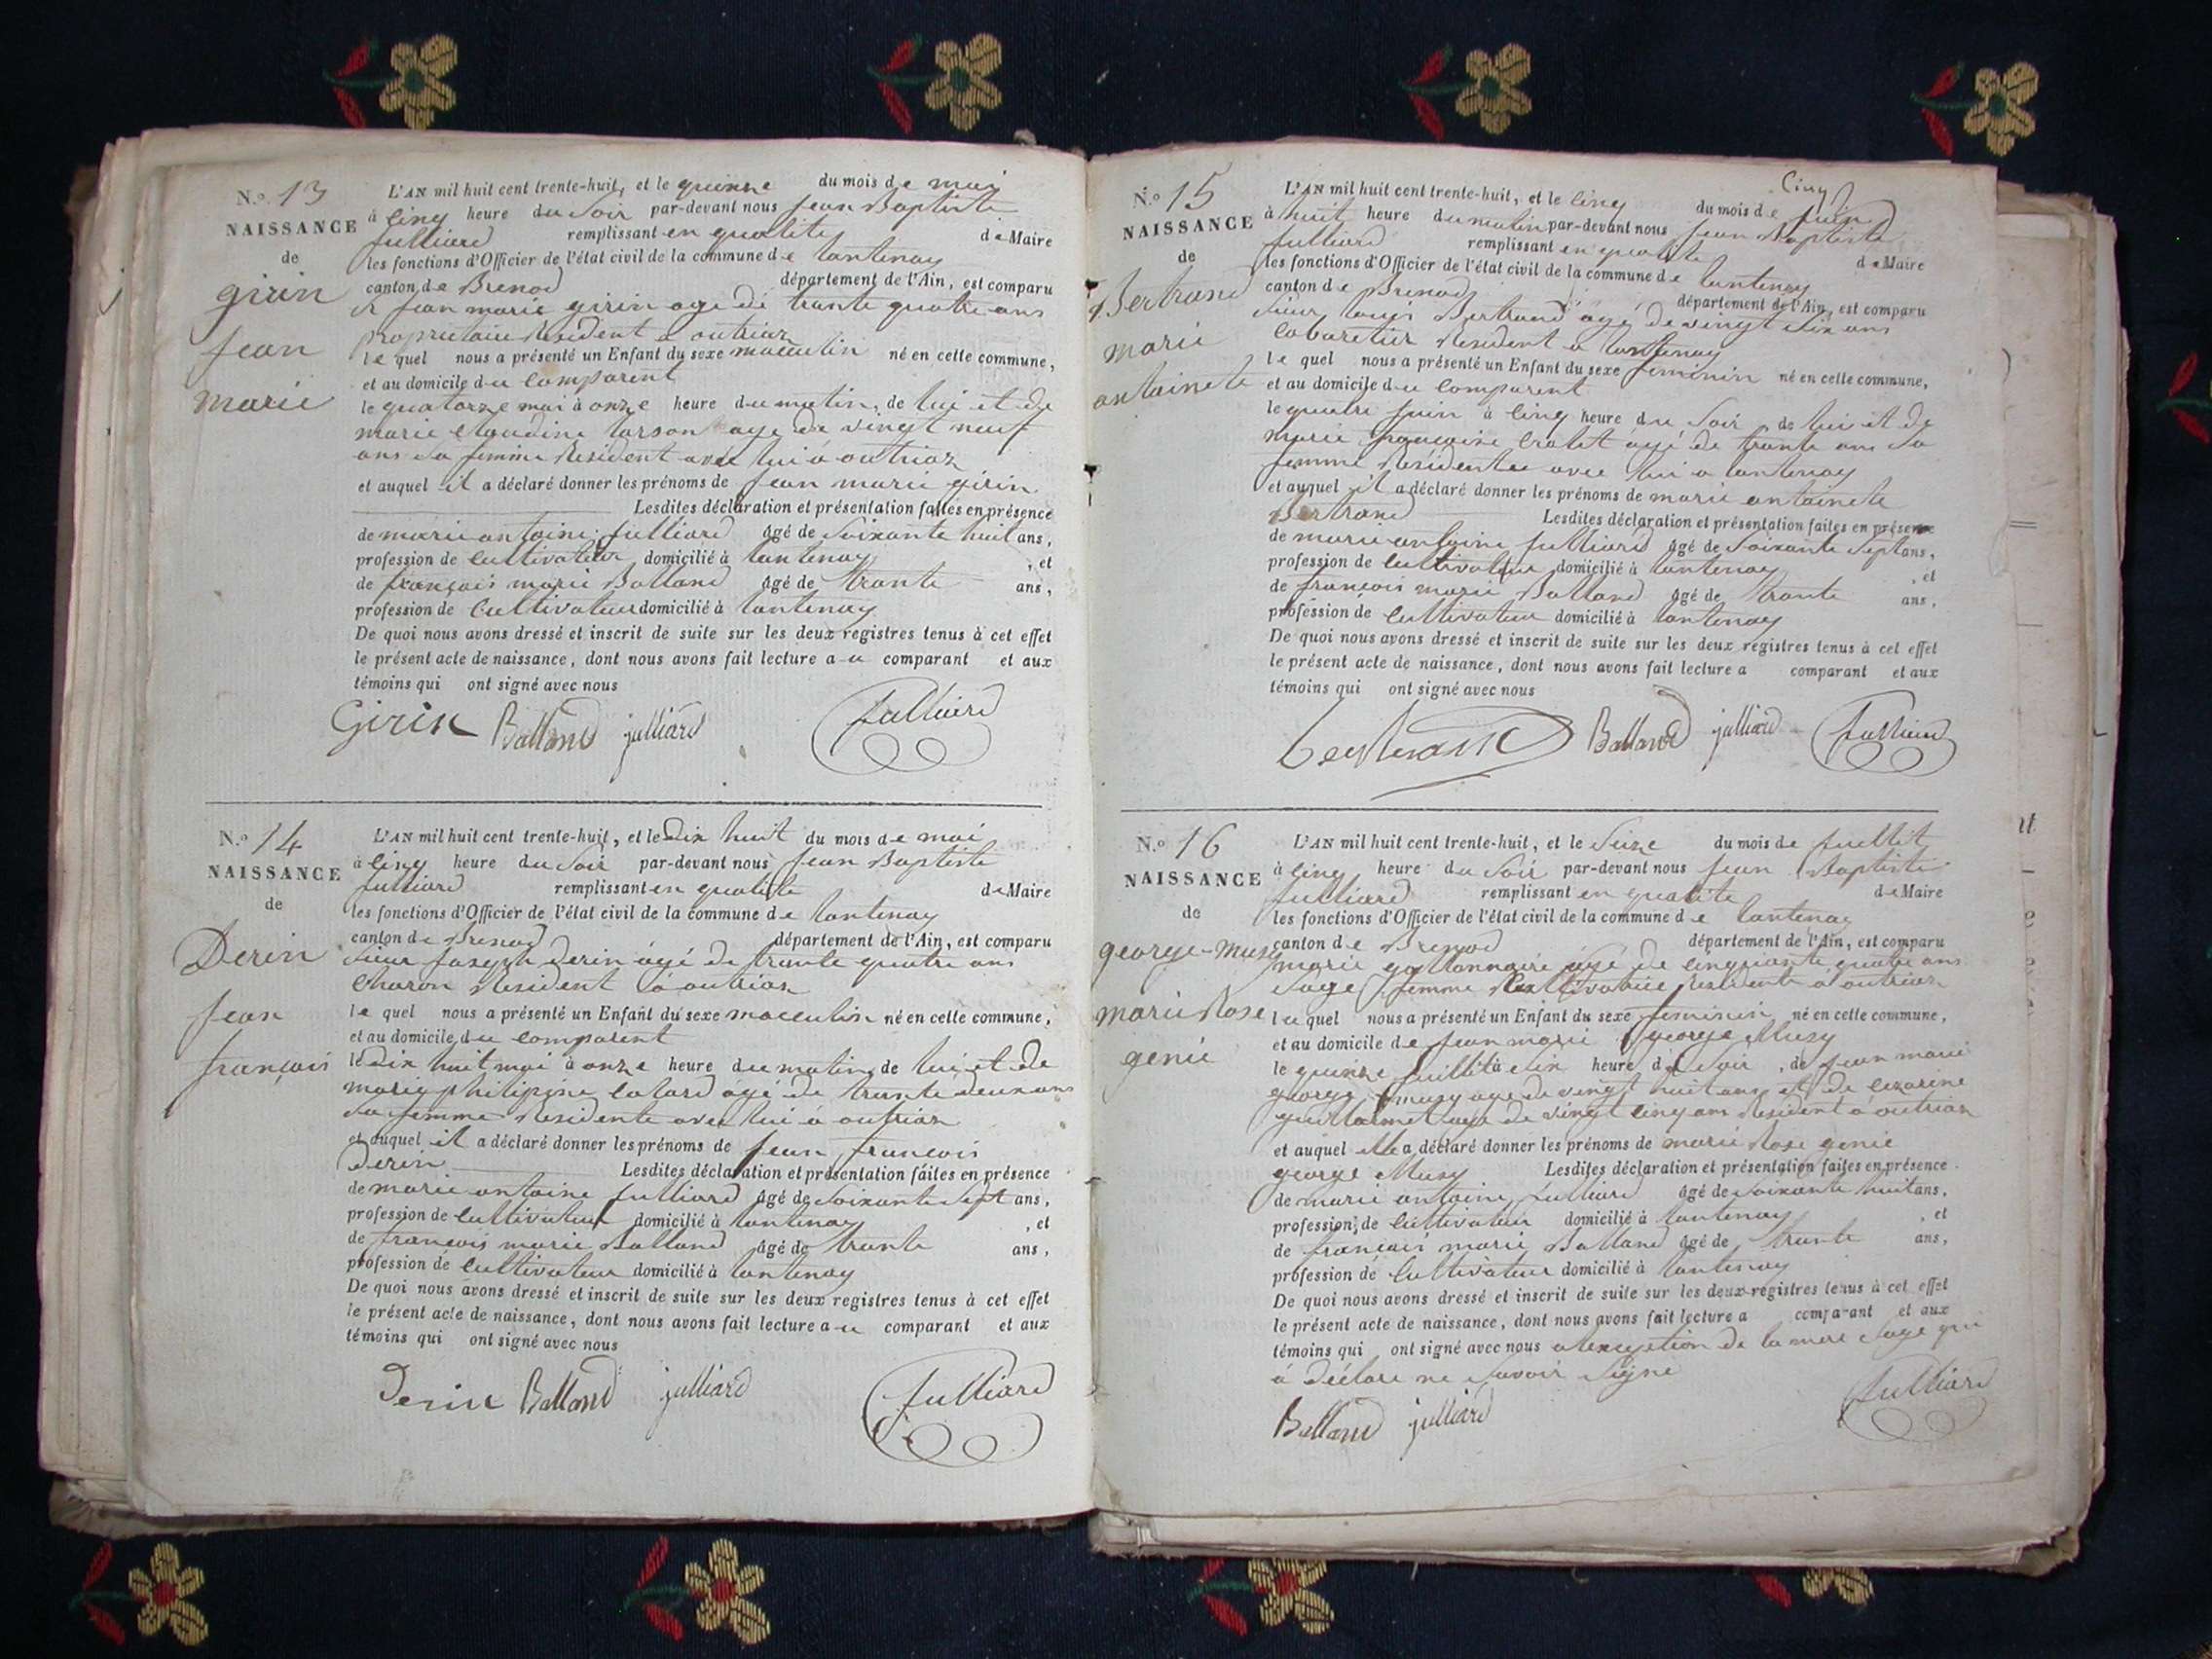 N.º 13
NAISSANCE
de
girin
jean
marie
L'AN mil huit cent trente-huit, et le quinze du mois de mai
à cinq heure du Soir par-devant nous jean Baptiste
julliard remplissant en qualite de Maire
les fonctions d'Officier de l'état civil de la commune de lantenay
canton de Brenod département de l'Ain, est comparu
jean marie girin age de trante quatre ans
proprietaire Resident a outriaz
le quel nous a présenté un Enfant du sexe masculin né en cette commune,
et au domicile du comparent
le quatorze mai à onze heure du matin, de lui et de
marie claudine age de vingt neuf
ans sa femme Resident avec lui à outriaz
et auquel il a déclaré donner les prénoms de jean marie girin
Lesdites déclaration et présentation faites en présence
de marie antoine julliard âgé de Soixante huit ans,
profession de cultivateur domicilié à lantenay , et
de françois marie Balland âgé de trante ans,
profession de cultivateur domicilié à lantenay
De quoi nous avons dressé et inscrit de suite sur les deux registres tenus à cet effet
le présent acte de naissance, dont nous avons fait lecture au comparant et aux
témoins qui ont signé avec nous
Girin Balland julliard julliard
N.º 14
NAISSANCE
de
Derin
jean
françois
L'AN mil huit cent trente-huit, et le Dix huit du mois de mai
à cinq heure du Soir par-devant nous jean Baptiste
julliard remplissant en qualite de Maire
les fonctions d'Officier de l'état civil de la commune de lantenay
canton de Brenod département de l'Ain, est comparu
Sieur joseph derin âgé de trante quatre ans
charon Resident à outriaz
le quel nous a présenté un Enfant du sexe masculin né en cette commune,
et au domicile du comparent
le Dix huit mai à onze heure du matin, de lui et de
marie philipine âgé de trante deux ans
sa femme Residente avec lui à outriaz
et auquel il a déclaré donner les prénoms de jean françois
Derin Lesdites déclaration et présentation faites en présence
de marie antoine julliard âgé de Soixante Sept ans,
profession de cultivateur domicilié à lantenay , et
de françois marie Balland âgé de trante ans,
profession de cultivateur domicilié à lantenay
De quoi nous avons dressé et inscrit de suite sur les deux registres tenus à cet effet
le présent acte de naissance, dont nous avons fait lecture au comparant et aux
témoins qui ont signé avec nous
Derin Balland julliard julliard
Cinq
N.º 15
NAISSANCE
de
Bertrand
marie
antoinete
L'AN mil huit cent trente-huit, et le cinq du mois de juin
à huit heure du matin par-devant nous jean Baptiste
julliard remplissant en qualite de Maire
les fonctions d'Officier de l'état civil de la commune de lantenay
canton de Brenod département de l'Ain, est comparu
Sieur louis Bertrand âgé de vingt Six ans
cabaretier Resident a lantenay
le quel nous a présenté un Enfant du sexe feminin né en cette commune,
et au domicile du comparent
le quatre juin à cinq heure du Soir de lui et de
marie françoise âgé de trante ans sa
femme Residente avec lui a lantenay
et auquel il a déclaré donner les prénoms de marie antoinete
Bertrand Lesdites déclaration et présentation faites en présence
de marie antoine julliard âgé de Soixante Sept ans,
profession de cultivateur domicilié à lantenay , et
de françois marie Balland âgé de trante ans,
profession de cultivateur domicilié à lantenay
De quoi nous avons dressé et inscrit de suite sur les deux registres tenus à cet effet
le présent acte de naissance, dont nous avons fait lecture a comparant et aux
témoins qui ont signé avec nous
bertrand Balland julliard julliard
N.º 16
NAISSANCE
de
george-musy
marie Rose
genie
L'AN mil huit cent trente-huit, et le Seize du mois de juillet
à cinq heure du Soir par-devant nous jean Baptiste
julliard remplissant en qualite de Maire
les fonctions d'Officier de l'état civil de la commune de lantenay
canton de Brenod département de l'Ain, est comparu
marie âgé de cinquante quatre ans
Sage femme Residente à outriaz
laquel nous a présenté un Enfant du sexe feminin né en cette commune,
et au domicile de jean marie george Musy
le quinze juillet à dix heure du Soir, de jean marie
george musy age de vingt huit ans et de cezarine
guillermet age de vingt cinq ans Resident à outriaz
et auquel elle a déclaré donner les prénoms de marie Rose genie
george Musy Lesdites déclaration et présentation faites en présence
de marie antoine julliard âgé de Soixante huit ans,
profession de cultivateur domicilié à lantenay , et
de françois marie Balland âgé de trante ans,
profession de cultivateur domicilié à lantenay
De quoi nous avons dressé et inscrit de suite sur les deux registres tenus à cet effet
le présent acte de naissance, dont nous avons fait lecture a comparant et aux
témoins qui ont signé avec nous a lexception de la mere Sage qui
à déclare ne Savoir Signe
Balland julliard julliard